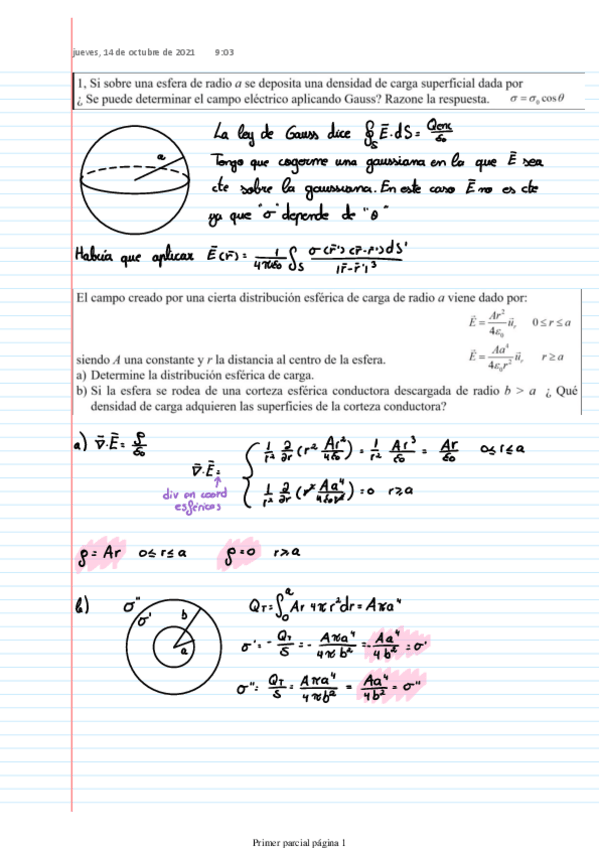 jueves, 14 de octubre de 2021 9:03
1, Si sobre una esfera de radio a se deposita una densidad de carga superficial dada por
¿ Se puede determinar el campo eléctrico aplicando Gauss? Razone la respuesta. σ = σ₀ cos θ
La ley de Gauss dice ∮_S Ē·dS = Qenc/ε₀
Tengo que cogerme una gaussiana en la que Ē sea
a
cte sobre la gaussiana. En este caso Ē no es cte
ya que "σ" depende de "θ"
Habría que aplicar Ē(r̄) = 1/4πε₀ ∫_S σ(r̄')(r̄-r̄')dS'/|r̄-r̄'|³
El campo creado por una cierta distribución esférica de carga de radio a viene dado por:
Ē = Ar²/4ε₀ ūᵣ 0 ≤ r ≤ a
Ē = Aa⁴/4ε₀r² ūᵣ r ≥ a
siendo A una constante y r la distancia al centro de la esfera.
a) Determine la distribución esférica de carga.
b) Si la esfera se rodea de una corteza esférica conductora descargada de radio b > a ¿ Qué
densidad de carga adquieren las superficies de la corteza conductora?
a) ∇̄·Ē = ρ/ε₀
1/r² ∂/∂r (r² Ar²/4ε₀) = 1/r² Ar³/ε₀ = Ar/ε₀ 0≤r≤a
∇̄·Ē =
1/r² ∂/∂r (r² Aa⁴/4ε₀r²) = 0 r≥a
div en coord
esféricas
ρ = Ar 0≤r≤a ρ=0 r>a
b) σ'' σ' b a
Q_T = ∫₀ᵃ Ar 4πr²dr = Aπa⁴
σ' = - Q_T/S = - Aπa⁴/4πb² = - Aa⁴/4b² = σ'
σ'' = Q_T/S = Aπa⁴/4πb² = Aa⁴/4b² = σ''
Primer parcial página 1